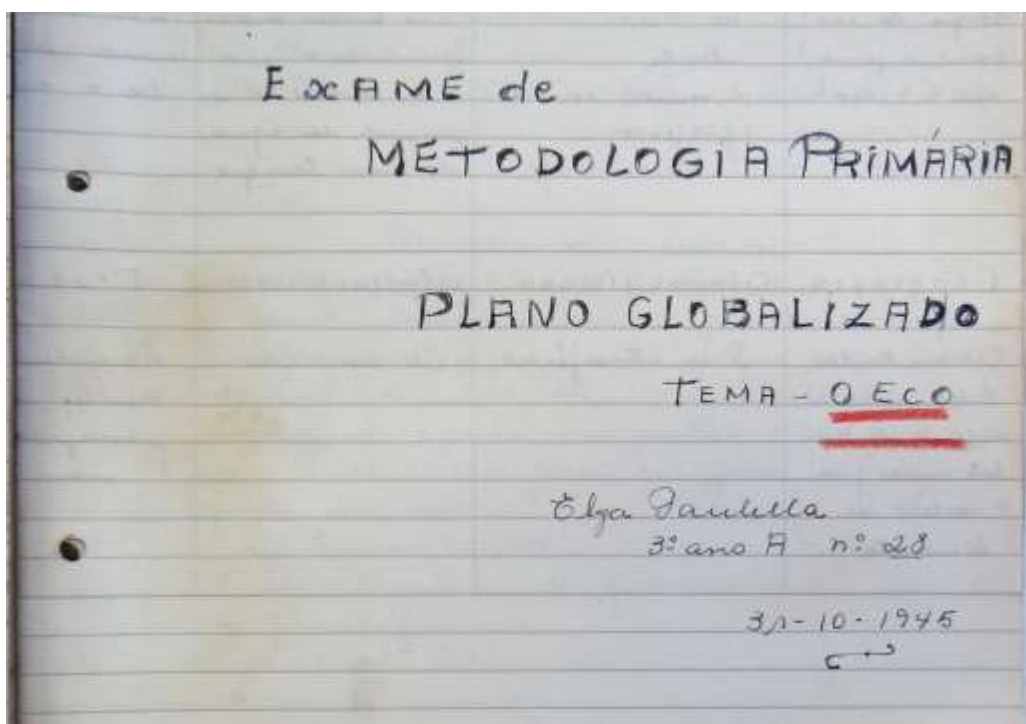 Exame de
METODOLOGIA PRIMÁRIA
PLANO GLOBALIZADO
TEMA - O ECO
Elza
3º ano A nº 28
31-10-1945